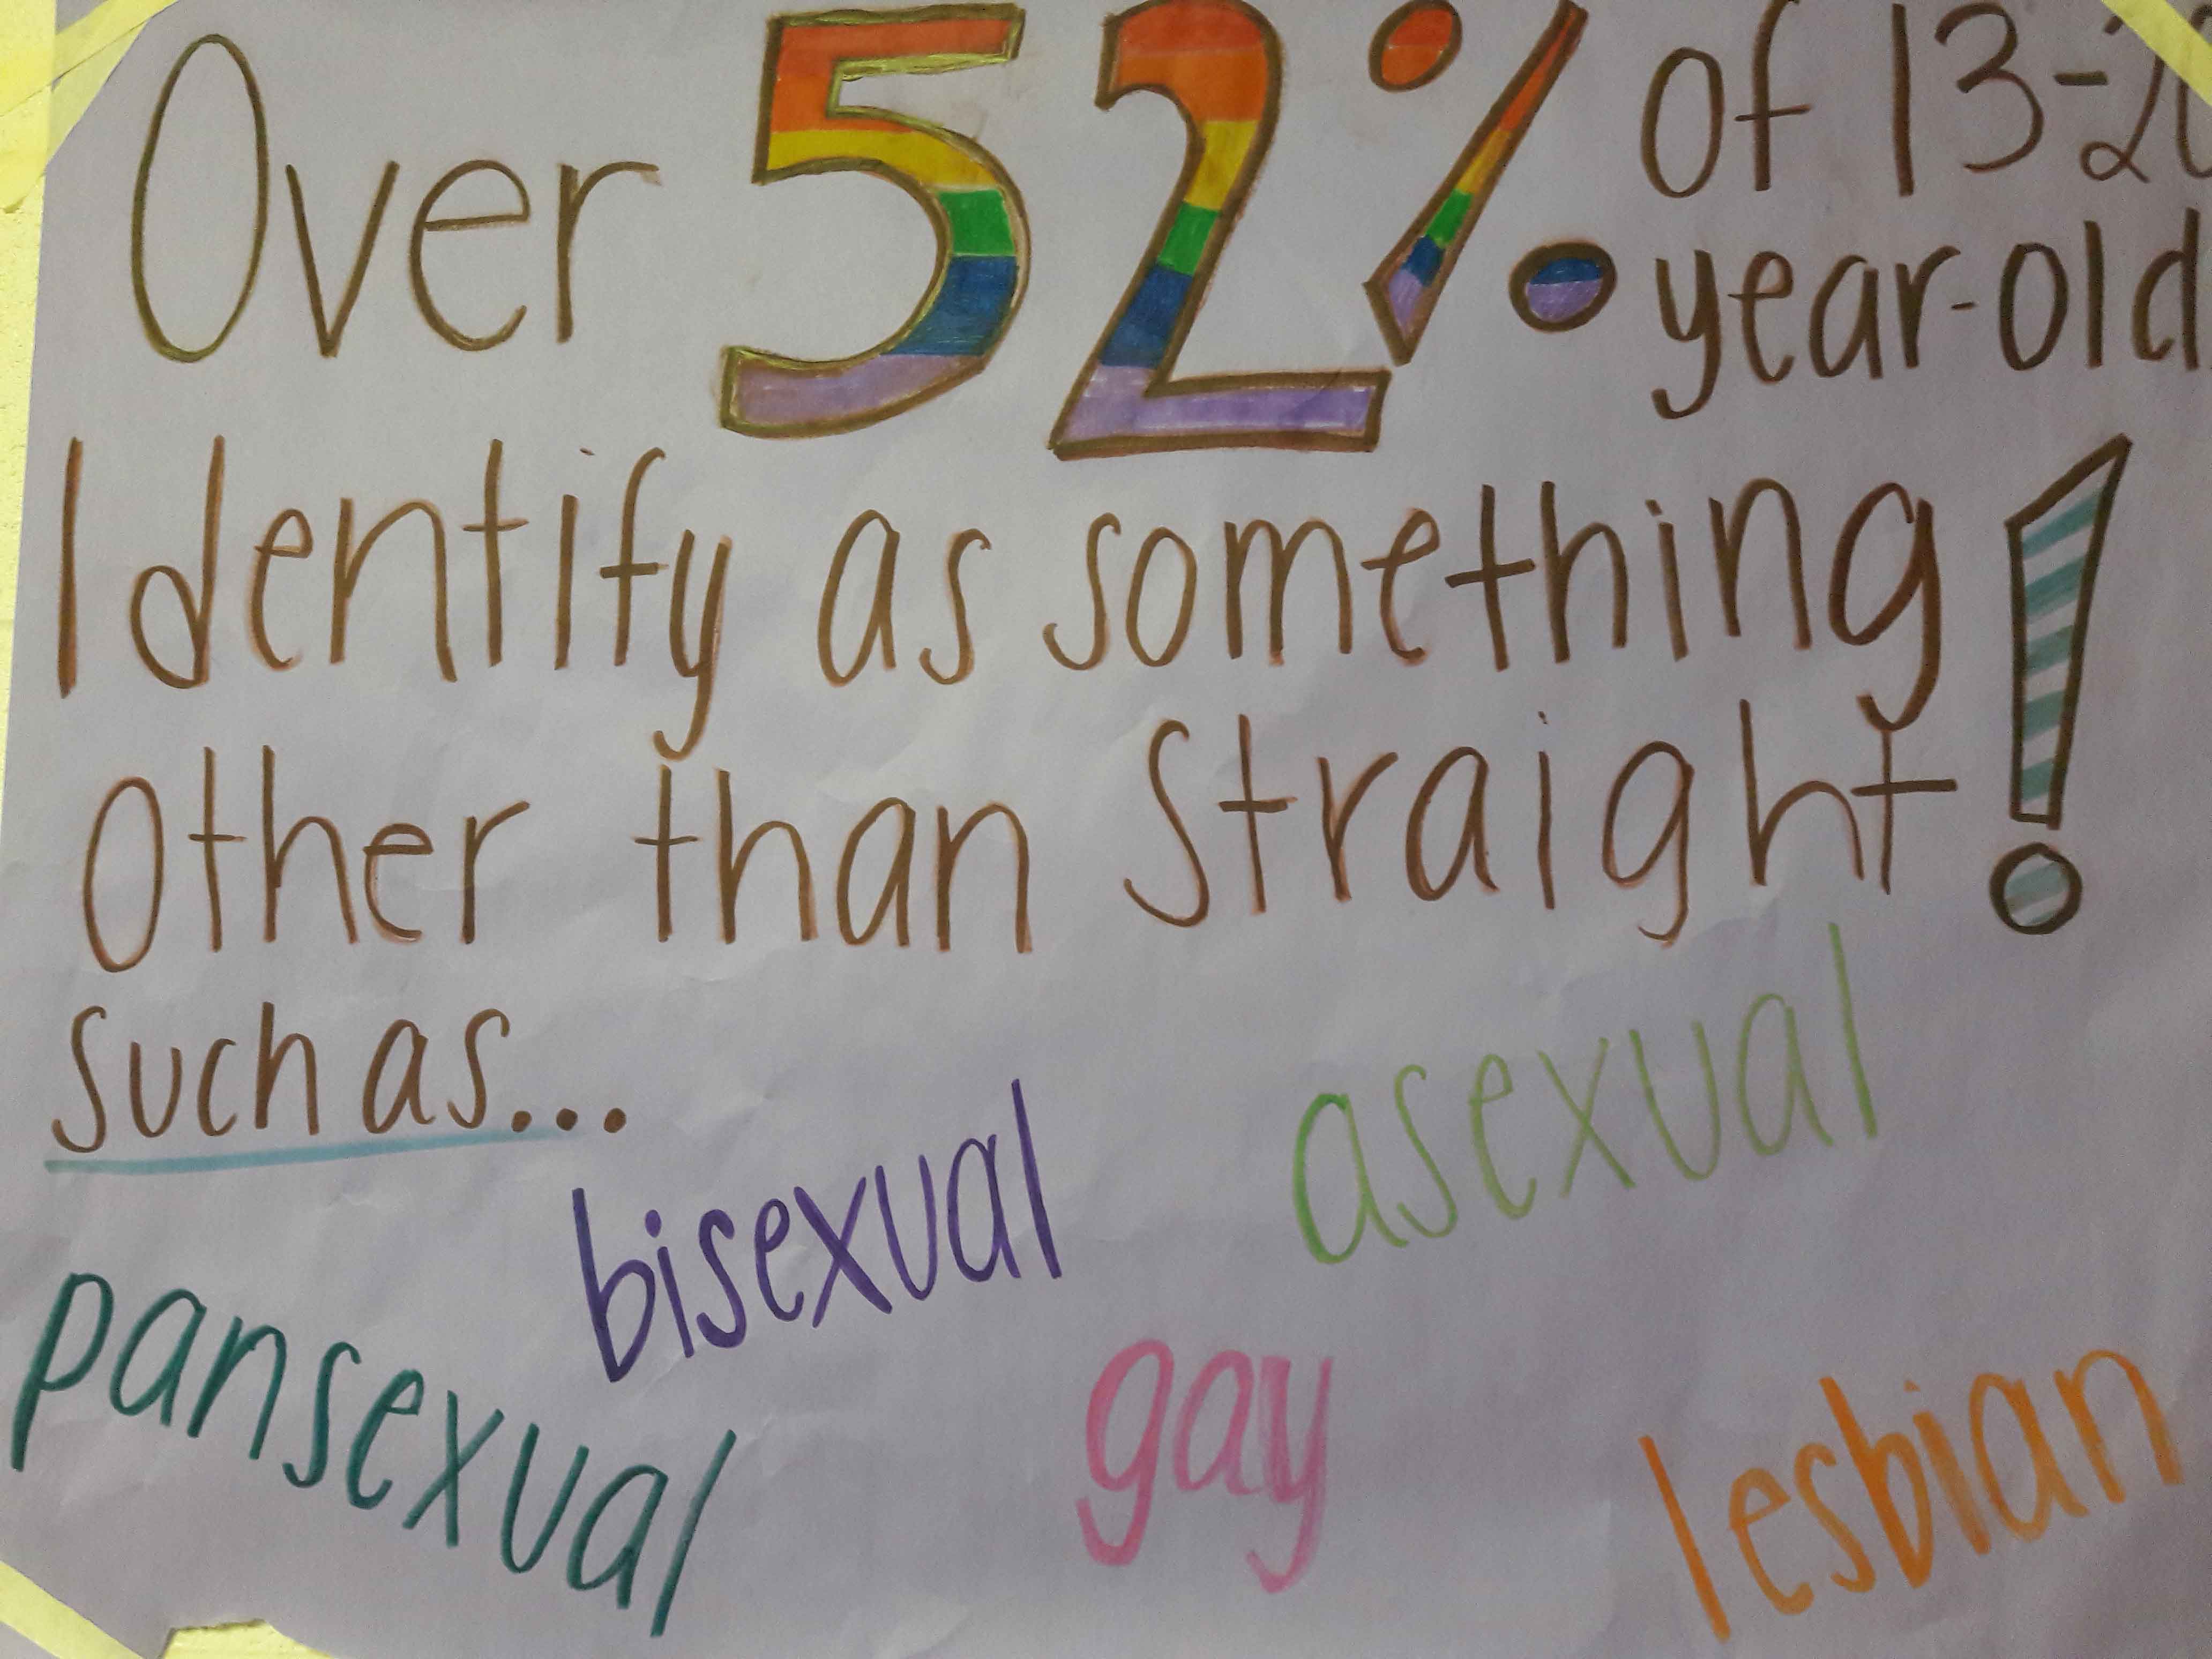 Over 52% of 13-20
year-old
Identify as something
Other than Straight!
such as...
bisexual
asexual
pansexual
gay
lesbian